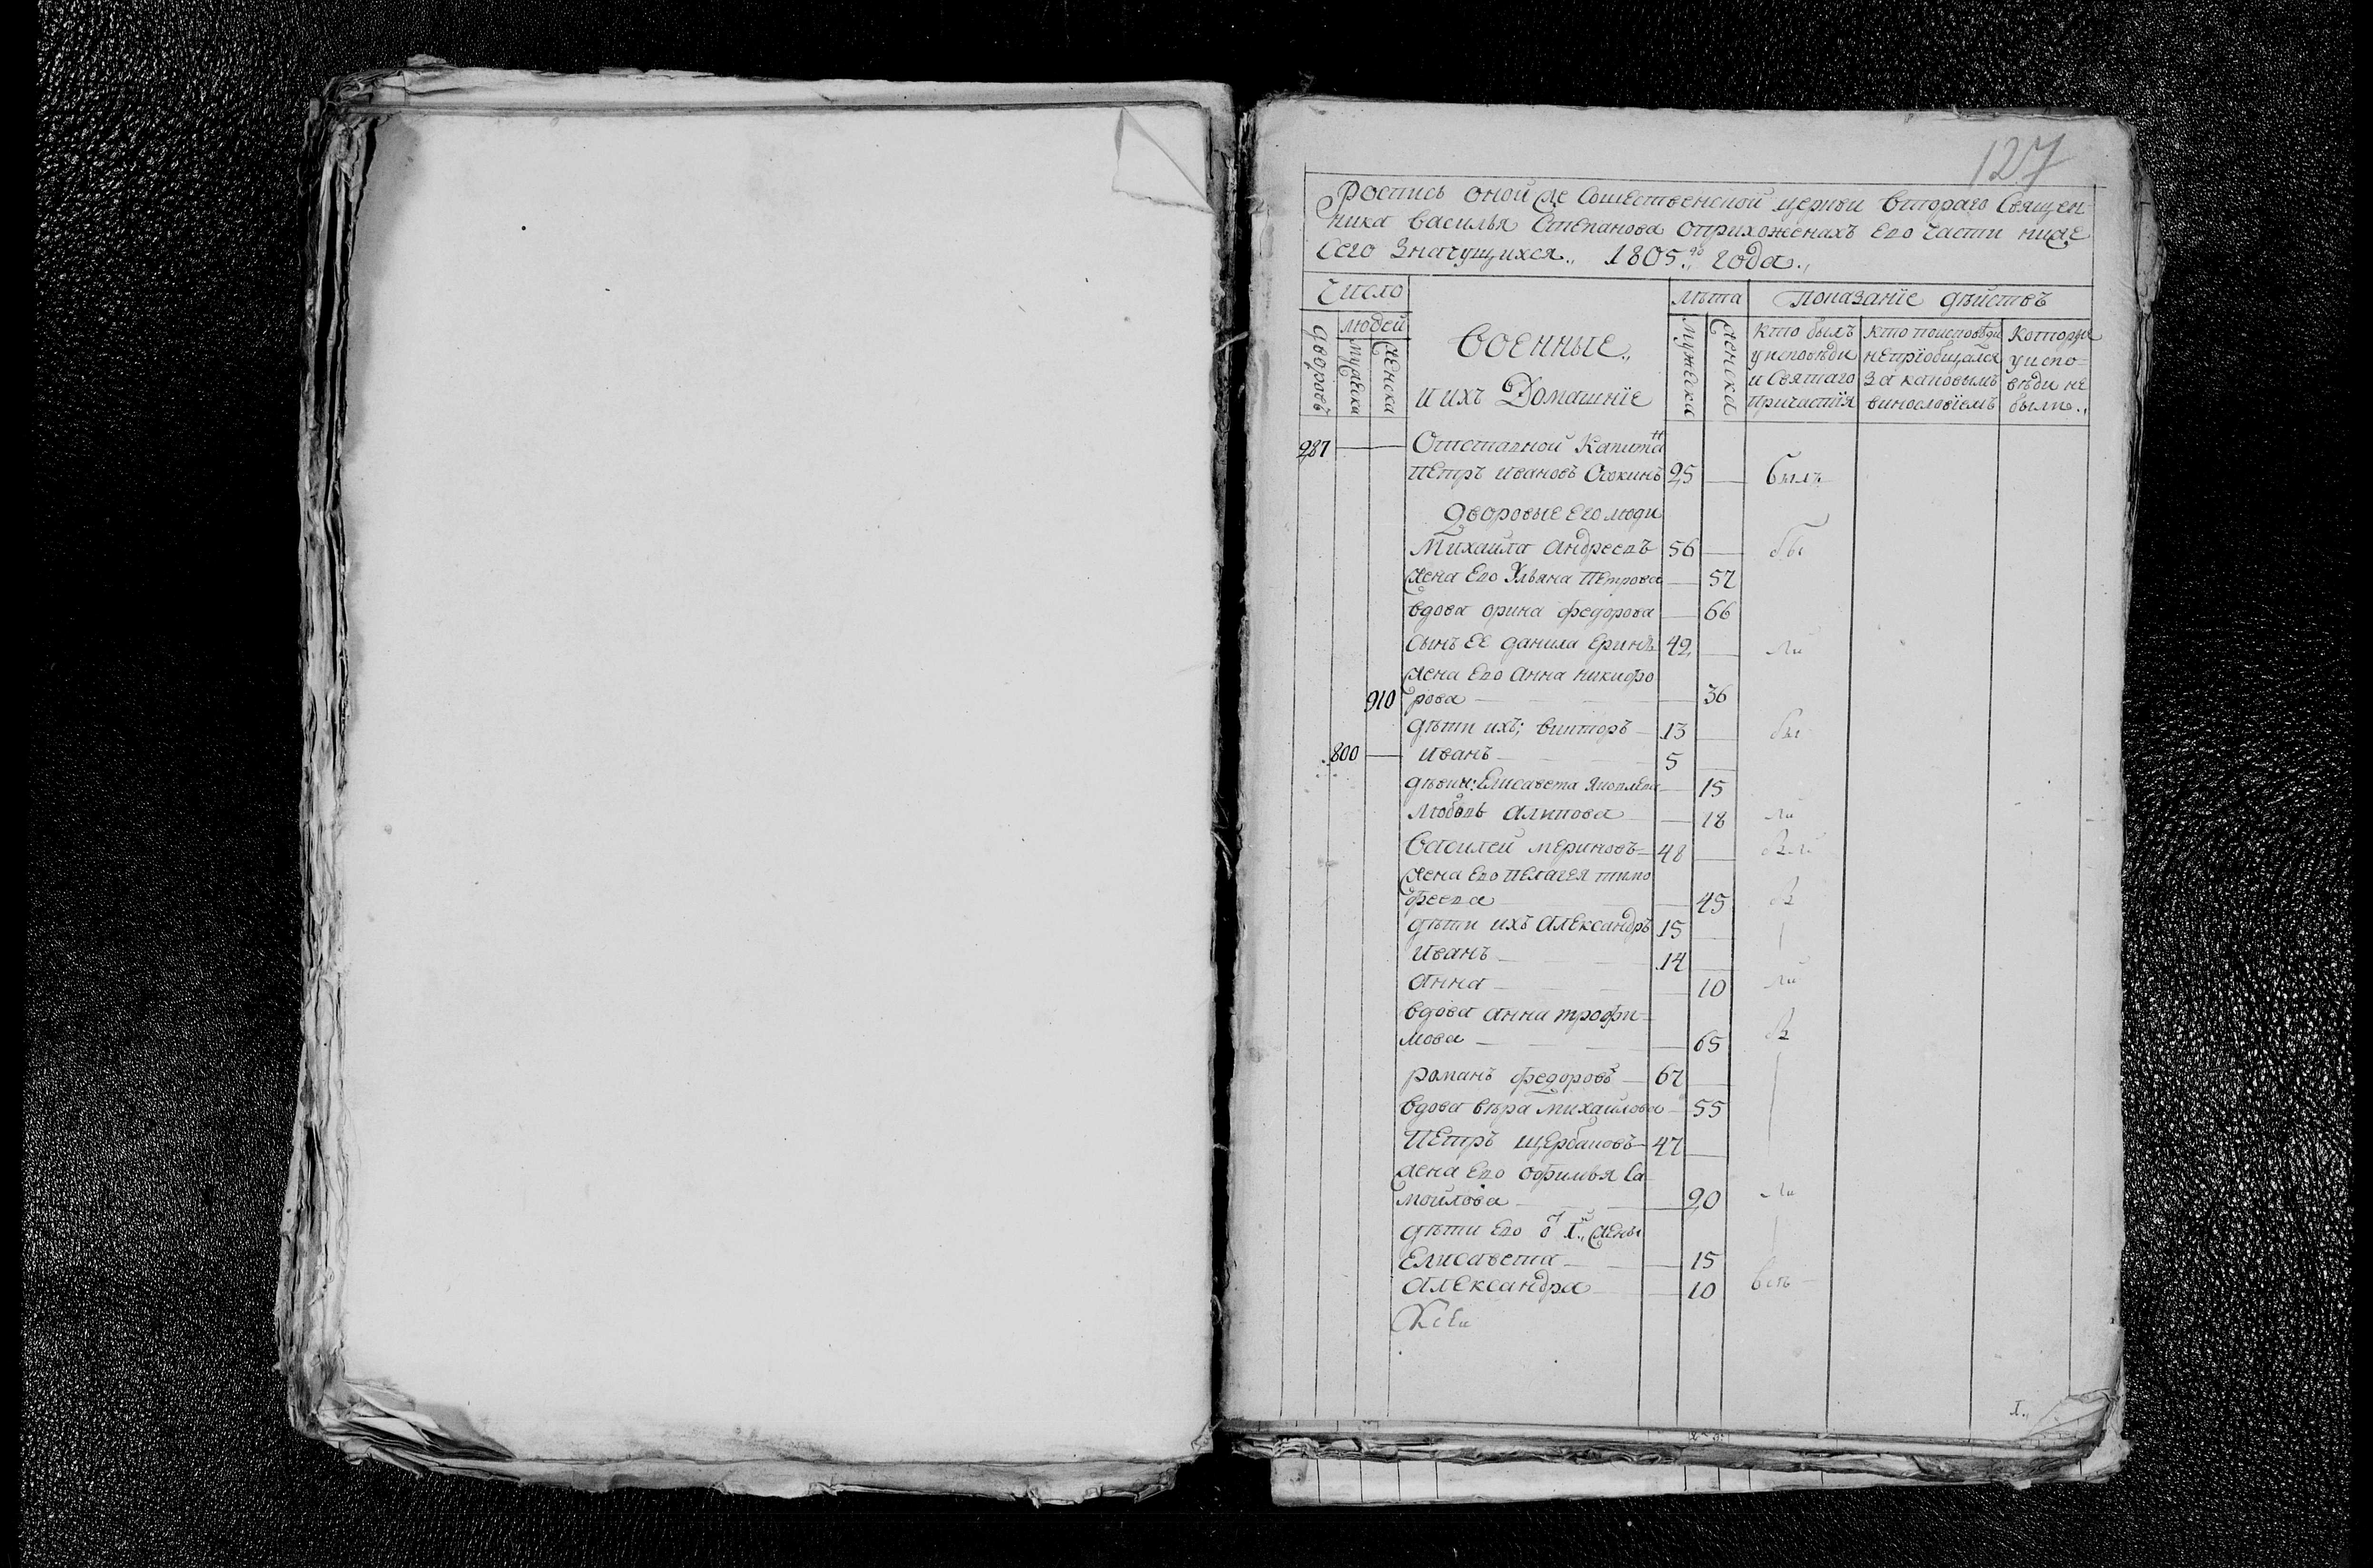 127
Роспись оной же Сошественской церкви втораго Священ-
ника василья Степанова оприхоженахъ Его Части ниже
Сего Значущихся., 1805.,го года.,
Число
лѣта
показанїе дѣйствъ
дворовъ
людей
мужеска
женска
Военные.,
и ихъ Домашнїе
мужеска
женска
кто былъ
у исповѣди
и Святаго
причастїя
кто поисповѣди
непрїобщался
За каковымъ
винословїемъ
которыи
у испо=
вѣди не
были.,
287 Отставной Капитан
Петръ ивановъ 25 былъ
Дворовые Его люди
Михаила андреевъ 56 бы
жена Его Ульяна Петрова 57
вдова орина федорова 66
Сынъ Ее данила 42 ли
жена Его Анна никифо
910 рова 36
дѣти ихъ; викторъ 13 бы
800 иванъ 5
дѣвки: Елисавета яковлева 15
любовь 18 ли
василей мериновъ 48
жена Его пелагея тимо
феева 45
дѣти ихъ александръ 15
иванъ 14
анна 10 ли
вдова анна трофи-
мова 65
романъ федоровъ 67
вдова вѣра михаилова 55
Петръ щербаковъ 47
жена Его офимья Са
мойлова 20 ли
дѣти Его от 1.,й жены
Елисавета 15
александра 10 всѣ
1.,